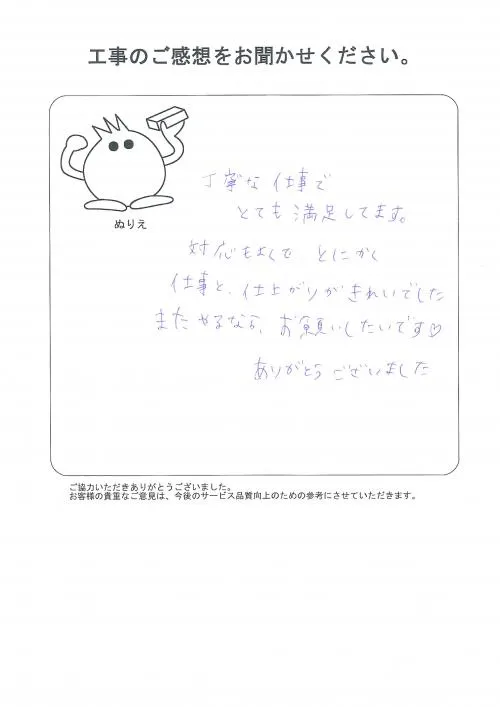 工事のご感想をお聞かせください。
ぬりえ
丁寧な仕事で
とても満足してます。
対応もよくて とにかく
仕事と、仕上がりがきれいでした
またやるなら、お願いしたいです♡
ありがとうございました
ご協力いただきありがとうございました。
お客様の貴重なご意見は、今後のサービス品質向上のための参考にさせていただきます。